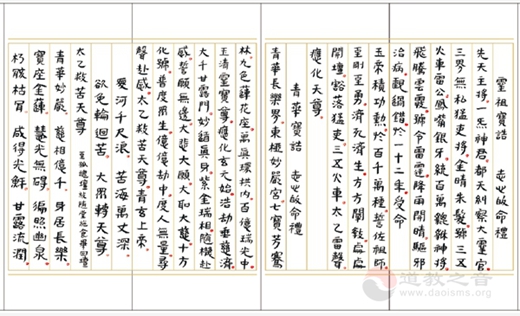 靈祖寶誥 志心皈命禮
先天主將 一炁神君 都天糾察大靈官
三界無私猛吏將 金睛朱髮號三五
火車雷公 鳳嘴銀牙 統百萬貔貅神將
飛騰雲霧 號令雷霆 降雨開晴 驅邪
治病 觀過錯於一十二年 受命
玉帝 積功勳於百千萬種 誓佐祖師
至剛至勇 濟死濟生 方方闡教 處處
開壇 豁落猛吏 三五火車 太乙雷聲
應化天尊
青華寶誥 志心皈命禮
青華長樂界 東極妙嚴宮 七寶芳騫
林 九色蓮花座 萬真環拱內 百億瑞光中
玉清靈寶尊 應化玄元始 浩劫垂慈濟
大千甘露門 妙道真身 紫金瑞相 隨機赴
感 誓願無邊 大悲大願 大聖大慈 十方
化號 普度眾生 億億劫中 度人無量 尋
聲赴感 太乙救苦天尊 青玄上帝
愛河千尺浪 苦海萬丈深
欲免輪迴苦 大眾轉天尊
太乙救苦天尊
青華妙嚴 慈相億千 身居長樂
寶座金蓮 慧光無礙 徧照幽泉
朽骸枯骨 咸得光鮮 甘露流潤
道教之音
www.daoisms.org